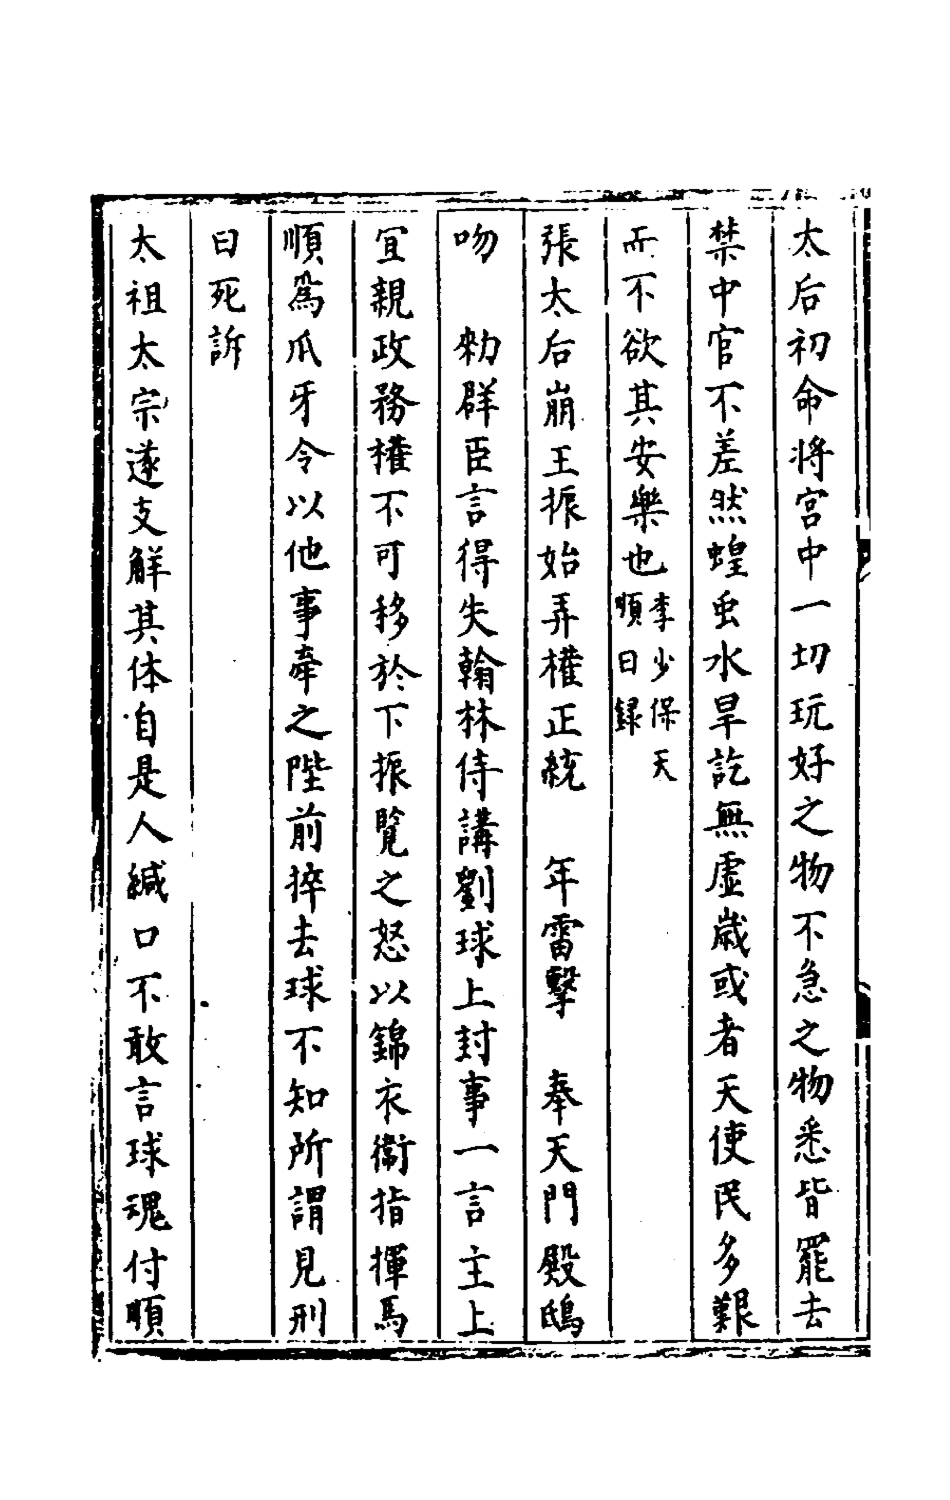 太后初命将宮中一切玩好之物不急之物悉皆罷去
禁中官不差然蝗虫水旱訖無虚歳或者天使民多艱
而不欲其安樂也李少保天順日録
張太后崩王振始弄權正統 年雷擊 奉天門殿鴟
吻 勑群臣言得失翰林侍講劉球上封事一言主上
宜親政務權不可移於下振覧之怒以錦衣衛指揮馬
順爲爪牙令以他事牽之陛前捽去球不知所謂見刑
曰死訴
太祖太宗遂支解其体自是人緘口不敢言球魂付順